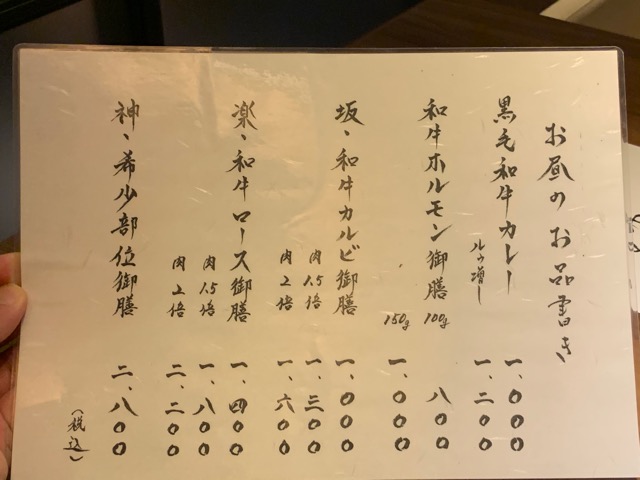 お昼のお品書き
黒毛和牛カレー 一、〇〇〇
ルゥ増し 一、二〇〇
和牛ホルモン御膳 100g 八〇〇
150g 一、〇〇〇
坂、和牛カルビ御膳 一、〇〇〇
肉1.5倍 一、三〇〇
肉2倍 一、六〇〇
楽、和牛ロース御膳 一、四〇〇
肉1.5倍 一、八〇〇
肉2倍 二、二〇〇
神、希少部位御膳 二、八〇〇
（税込）